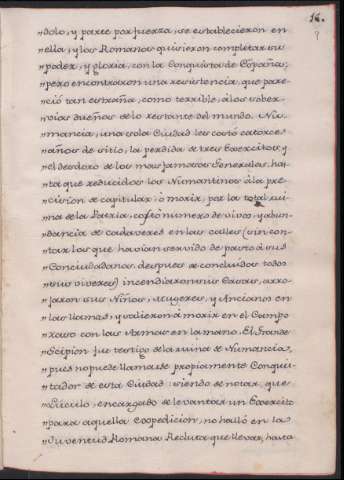 16.
"dolo, y parte por fuerza, se establecieron en
"ella, y los Romanos quisieron completar su
"poder, y gloria, con la Conquista de España;
"pero encontraron una resistencia, que pare-
"ció tan estraña, como terrible, á los sober-
"vios dueños de lo restante del mundo. Nu-
"mancia, una sola Ciudad les costó catorce
"años de sitio, la perdida de tres Exercitos, y
"el desdoro de los mas famosos Generales, has-
"ta que reducidos los Numantinos á la pre-
"cision de capitular, ó morir, por la total rui-
"na de la Patria, corto numero de vivos, y abun-
"dancia de cadaveres en las calles (sin con-
"tar los que havian servido de pasto á sus
"Conciudadanos, despues de concluidos todos
"sus viveres) incendiaron sus Casas, arro-
"jaron sus Niños, Mugeres, y Ancianos en
"las llamas, y salieron á morir en el Campo
"raso con las Armas en la mano. El Grande
"Scipion fue testigo de la ruina de Numancia,
"pues no puede llamarse propiamente Conquis-
"tador de esta Ciudad: siendo de notar, que
"Luculo, encargado de levantar un Exercito
"para aquella Expedicion, no halló en la
"Juventud Romana Recluta que llevar, hasta